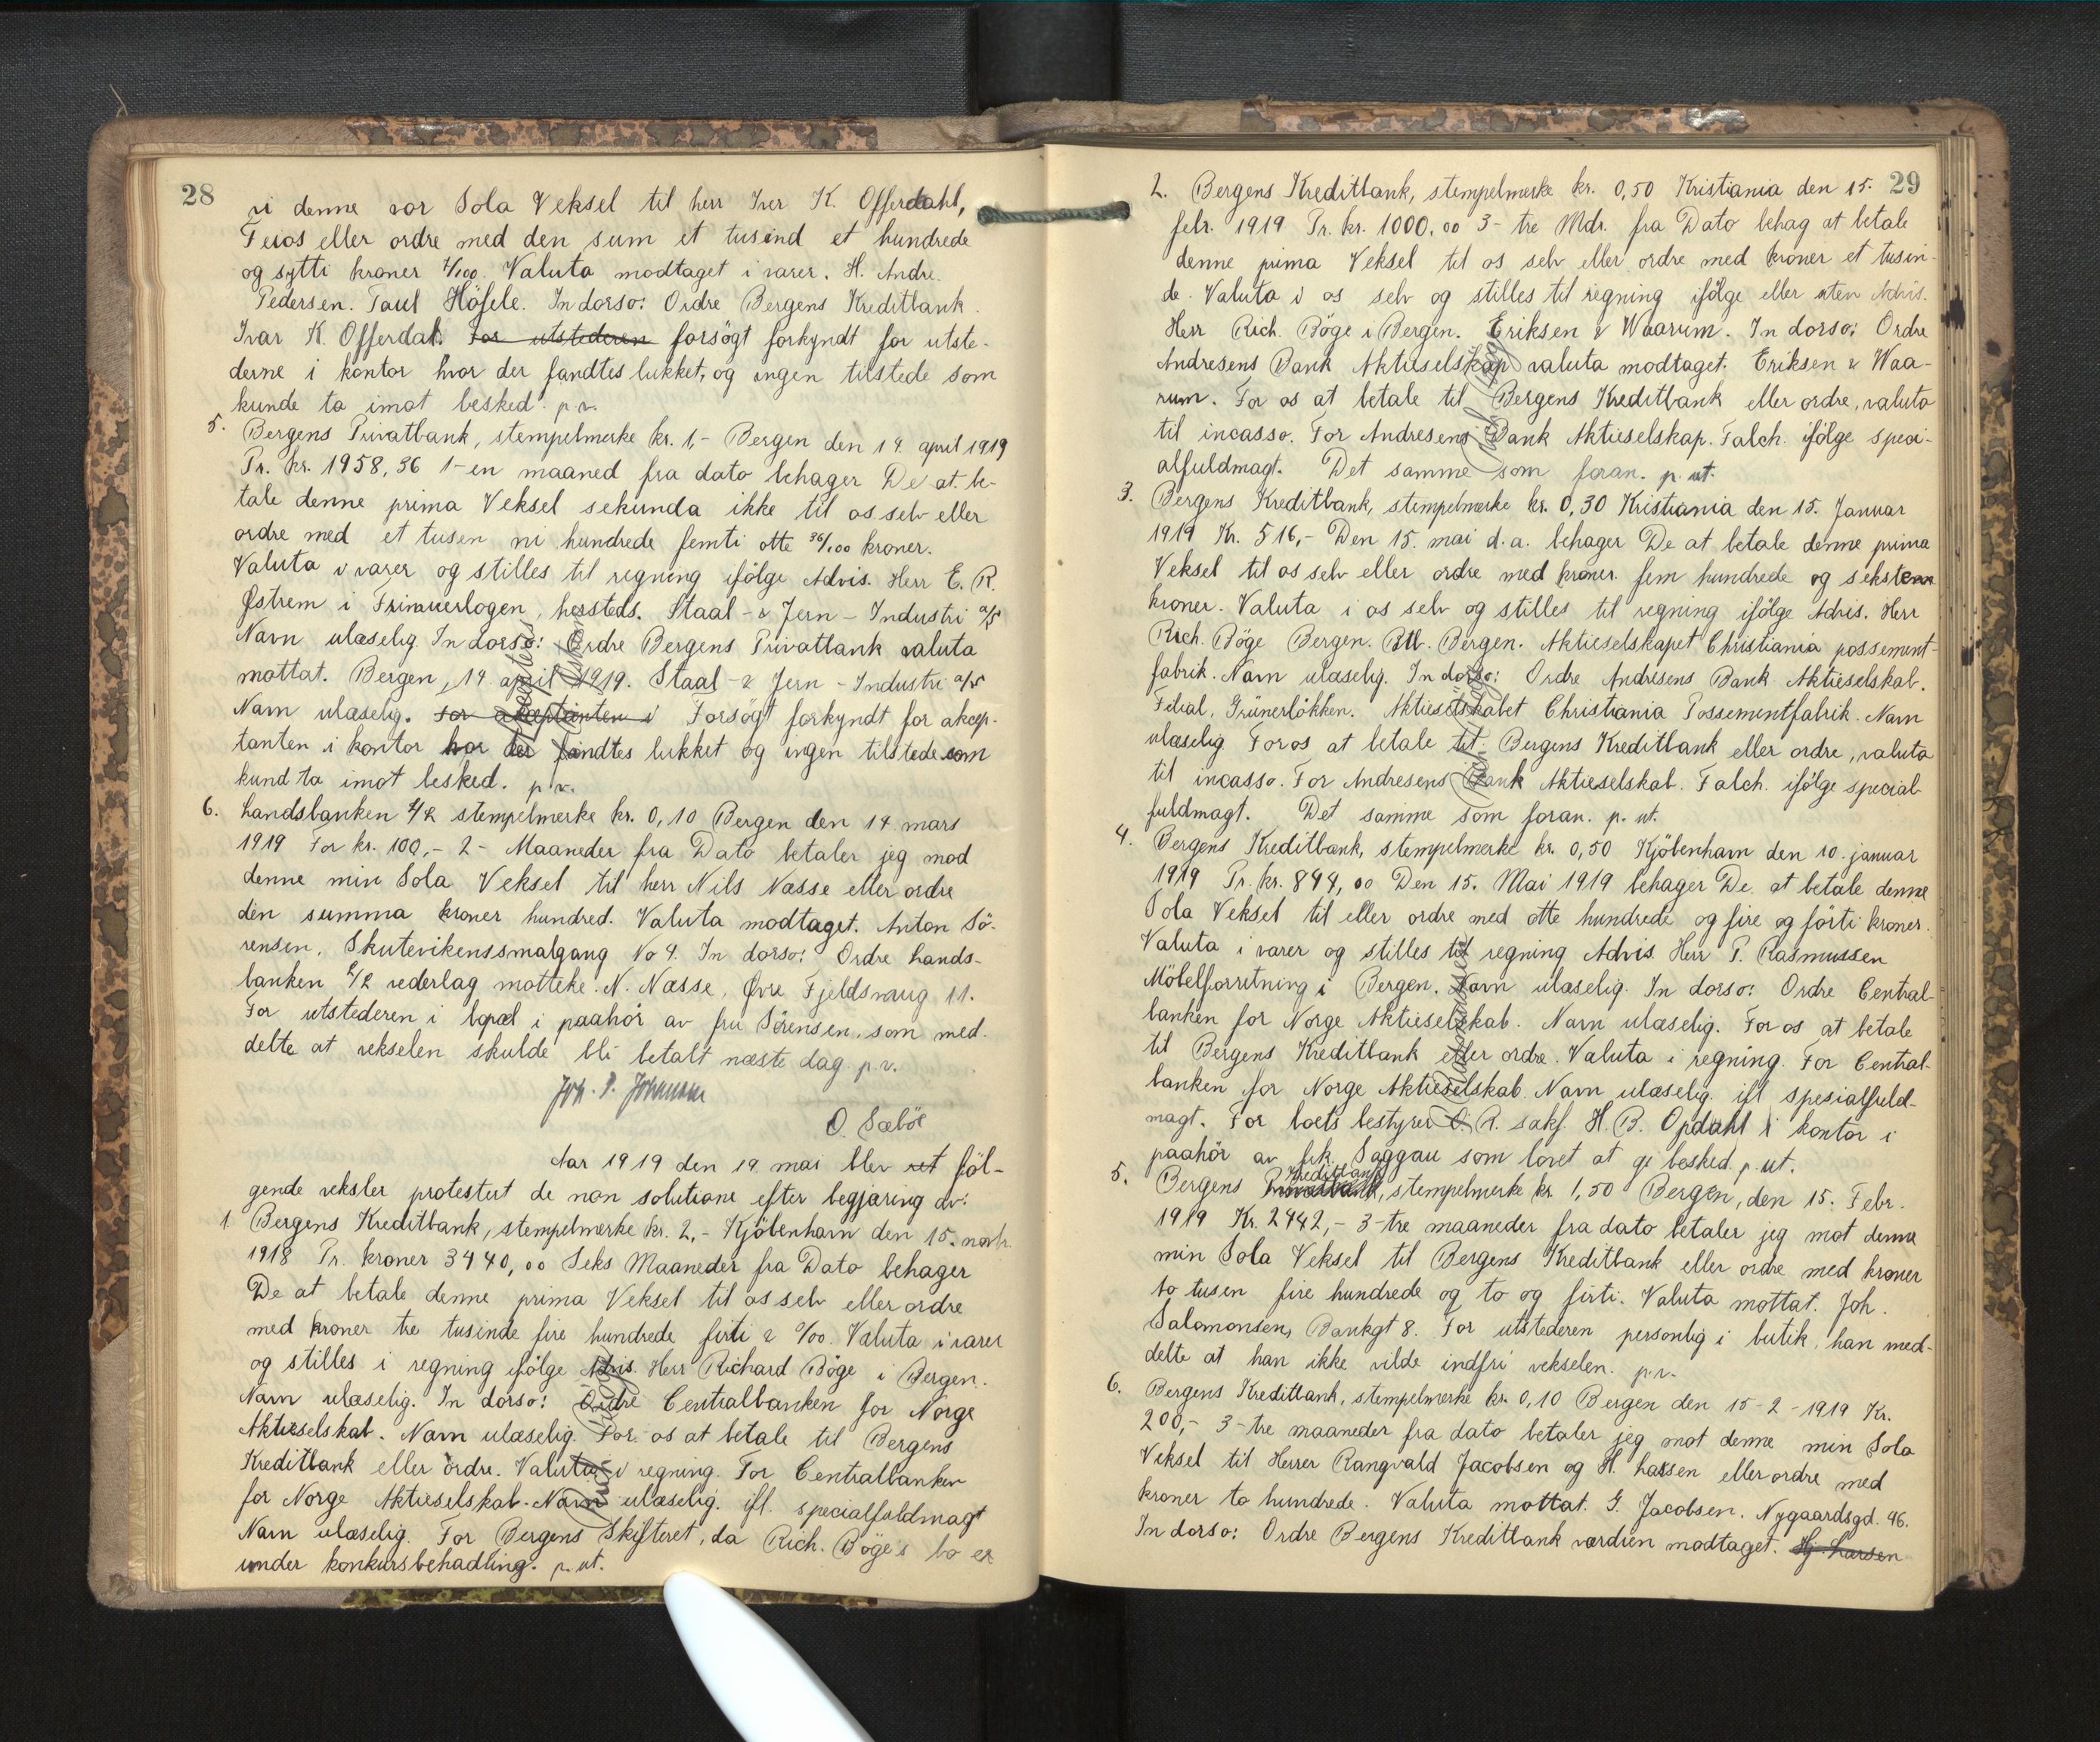 28
vi denne vor Sola Veksel til herr Iver K. Offerdahl,
Feios eller ordre med den sum et tusind et hundrede
og sytti kroner Valuta modtaget i varer. H. Andr.
Pedersen. Paul Höfele. In dorso: Ordre Bergens Kreditbank.
Ivar K. Offerdal. For utstederen forsögt forkyndt for utste-
derne i kontor hvor der fandtes lukket, og ingen tilstede som
kunde ta imot besked. p.v.
5. Bergens Privatbank, stempelmerke kr. 1,- Bergen den 14. april 1919
Pr. kr. 1958,36 1-en maaned fra dato behager De at be-
tale denne prima Veksel sekunda ikke til os selv eller
ordre med et tusen ni hundrede femti otte 36/100 kroner.
Valuta i varer og stilles til regning ifölge Advis. Herr E. R.
Østrem i Frimuerlogen, hersteds. Staal- & Jern-Industri a/s
Navn ulæselig. In dorso: Ordre Bergens Privatbank valuta
mottat. Bergen, 14 april 1919. Staal- & Jern-Industri a/s
Navn ulæselig. For akseptanten i Forsögt forkyndt for aksep-
tanten i kontor hvor der fandtes lukket og ingen tilstede som
kund ta imot besked. p.v.
6. Landsbanken a/s stempelmerke kr. 0,10 Bergen den 14. mars
1919 For kr. 100,- 2- Maaneder fra Dato betaler jeg mod
denne min Sola Veksel til herr Nils Næsse eller ordre
den summa kroner hundred. Valuta modtaget. Anton Sö-
rensen, Skutevikenssmalgang No 4. In dorso: Ordre Lands-
banken a/s vederlag motteke. N. Næsse, Øvre Fjeldsmug 11.
For utstederen i bopæl i paahör av fru Sörensen, som med-
delte at vekselen skulde bli betalt næste dag. p.v.
Joh. P. Johansen
O. Sæböe
Aar 1919 den 19 mai blev föl-
gende veksler protestert de non solutione efter begjæring av:
1. Bergens Kreditbank, stempelmerke kr. 2,- Kjöbenhavn den 15. novbr.
1918 Pr. kroner 3440,00 Seks Maaneder fra Dato behager
De at betale denne prima Veksel til os selv eller ordre
med kroner tre tusinde fire hundrede firti & 0/00. Valuta i varer
og stilles i regning ifölge Advis. Herr Richard Böge i Bergen.
Navn ulæselig. In dorso: Ordre Centralbanken for Norge
Aktieselskab. Navn ulæselig. For os at betale til Bergens
Kreditbank eller ordre. Valuta i regning. For Centralbanken
for Norge Aktieselskab. Navn ulæselig. ifl. specialfuldmagt
Navn ulæselig. For Bergens Skifteret, da Rich. Böge's bo er
under konkursbehadling. p. ut.
29
2. Bergens Kreditbank, stempelmerke kr. 0,50 Kristiania den 15.
febr. 1919 Pr. kr. 1000.00 3- tre Mdr. fra Dato behag at betale
denne prima Veksel til os selv eller ordre med kroner et tusin-
de. Valuta i os selv og stilles til regning ifölge eller uten Advis.
Herr Rich. Böge i Bergen. Eriksen & Waarum. In dorso: Ordre
Andresens Bank Aktieselskap valuta modtaget. Eriksen & Waa-
rum. For os at betale til Bergens Kreditbank eller ordre, valuta
til incasso. For Andresens Bank Aktieselskap. Falch. ifölge speci-
alfuldmagt. Det samme som foran. p. ut.
3. Bergens Kreditbank, stempelmerke kr. 0,30 Kristiania den 15. Januar
1919 Kr. 516,- Den 15. mai d.a. behager De at betale denne prima
Veksel til os selv eller ordre med kroner fem hundrede og seksten
kroner. Valuta i os selv og stilles til regning ifölge Advis. Herr
Rich. Böge Bergen. Btl. Bergen. Aktieselskapet Christiania possement-
fabrik. Navn ulæselig. In dorso: Ordre Andresens Bank Aktieselskab.
Filial, Grünerlökken. Aktieselskabet Christiania Possementfabrik. Navn
ulæselig. For os at betale til Bergens Kreditbank eller ordre, valuta
til incasso. For Andresens Bank Aktieselskab. Falch. ifölge special-
fuldmagt. Det samme som foran. p. ut.
4. Bergens Kreditbank, stempelmerke kr. 0,50 Kjöbenhavn den 10. januar
1919 Pr. kr. 844,00 Den 15. Mai 1919 behager De at betale denne
Sola Veksel til eller ordre med otte hundrede og fire og förti kroner.
Valuta i varer og stilles til regning Advis. Herr P. Rasmussen
Möbelforretning i Bergen. Navn ulæselig. In dorso: Ordre Central-
banken for Norge Aktieselskab. Navn ulæselig. For os at betale
til Bergens Kreditbank eller ordre. Valuta i regning. For Central-
banken for Norge Aktieselskab. Navn ulæselig. ifl spesialfuld-
magt. For boets bestyrer O. R. sakf. H. B. Opdahl i kontor i
paahör av frk. Saggau som lovet at gi besked. p. ut.
5. Bergens Kreditbank, stempelmerke kr. 1,50 Bergen, den 15. Febr.
1919 Kr. 2442,- 3-tre maaneder fra dato betaler jeg mot denne
min Sola Veksel til Bergens Kreditbank eller ordre med kroner
to tusen fire hundrede og to og firti. Valuta mottat. Joh.
Salomonsen, Bankgt 8. For utstederen personlig i butik, han med-
delte at han ikke vilde indfri vekselen. p.v.
6. Bergens Kreditbank, stempelmerke kr. 0,10 Bergen den 15-2-1919 Kr.
200,- 3-tre maaneder fra dato betaler jeg mot denne min Sola
Veksel til Herrer Rangvald Jacobsen og H. Larsen eller ordre med
kroner to hundrede. Valuta mottat. G. Jacobsen. Nygaardsgd. 96.
In dorso: Ordre Bergens Kreditbank værdien modtaget. Hj. Larsen